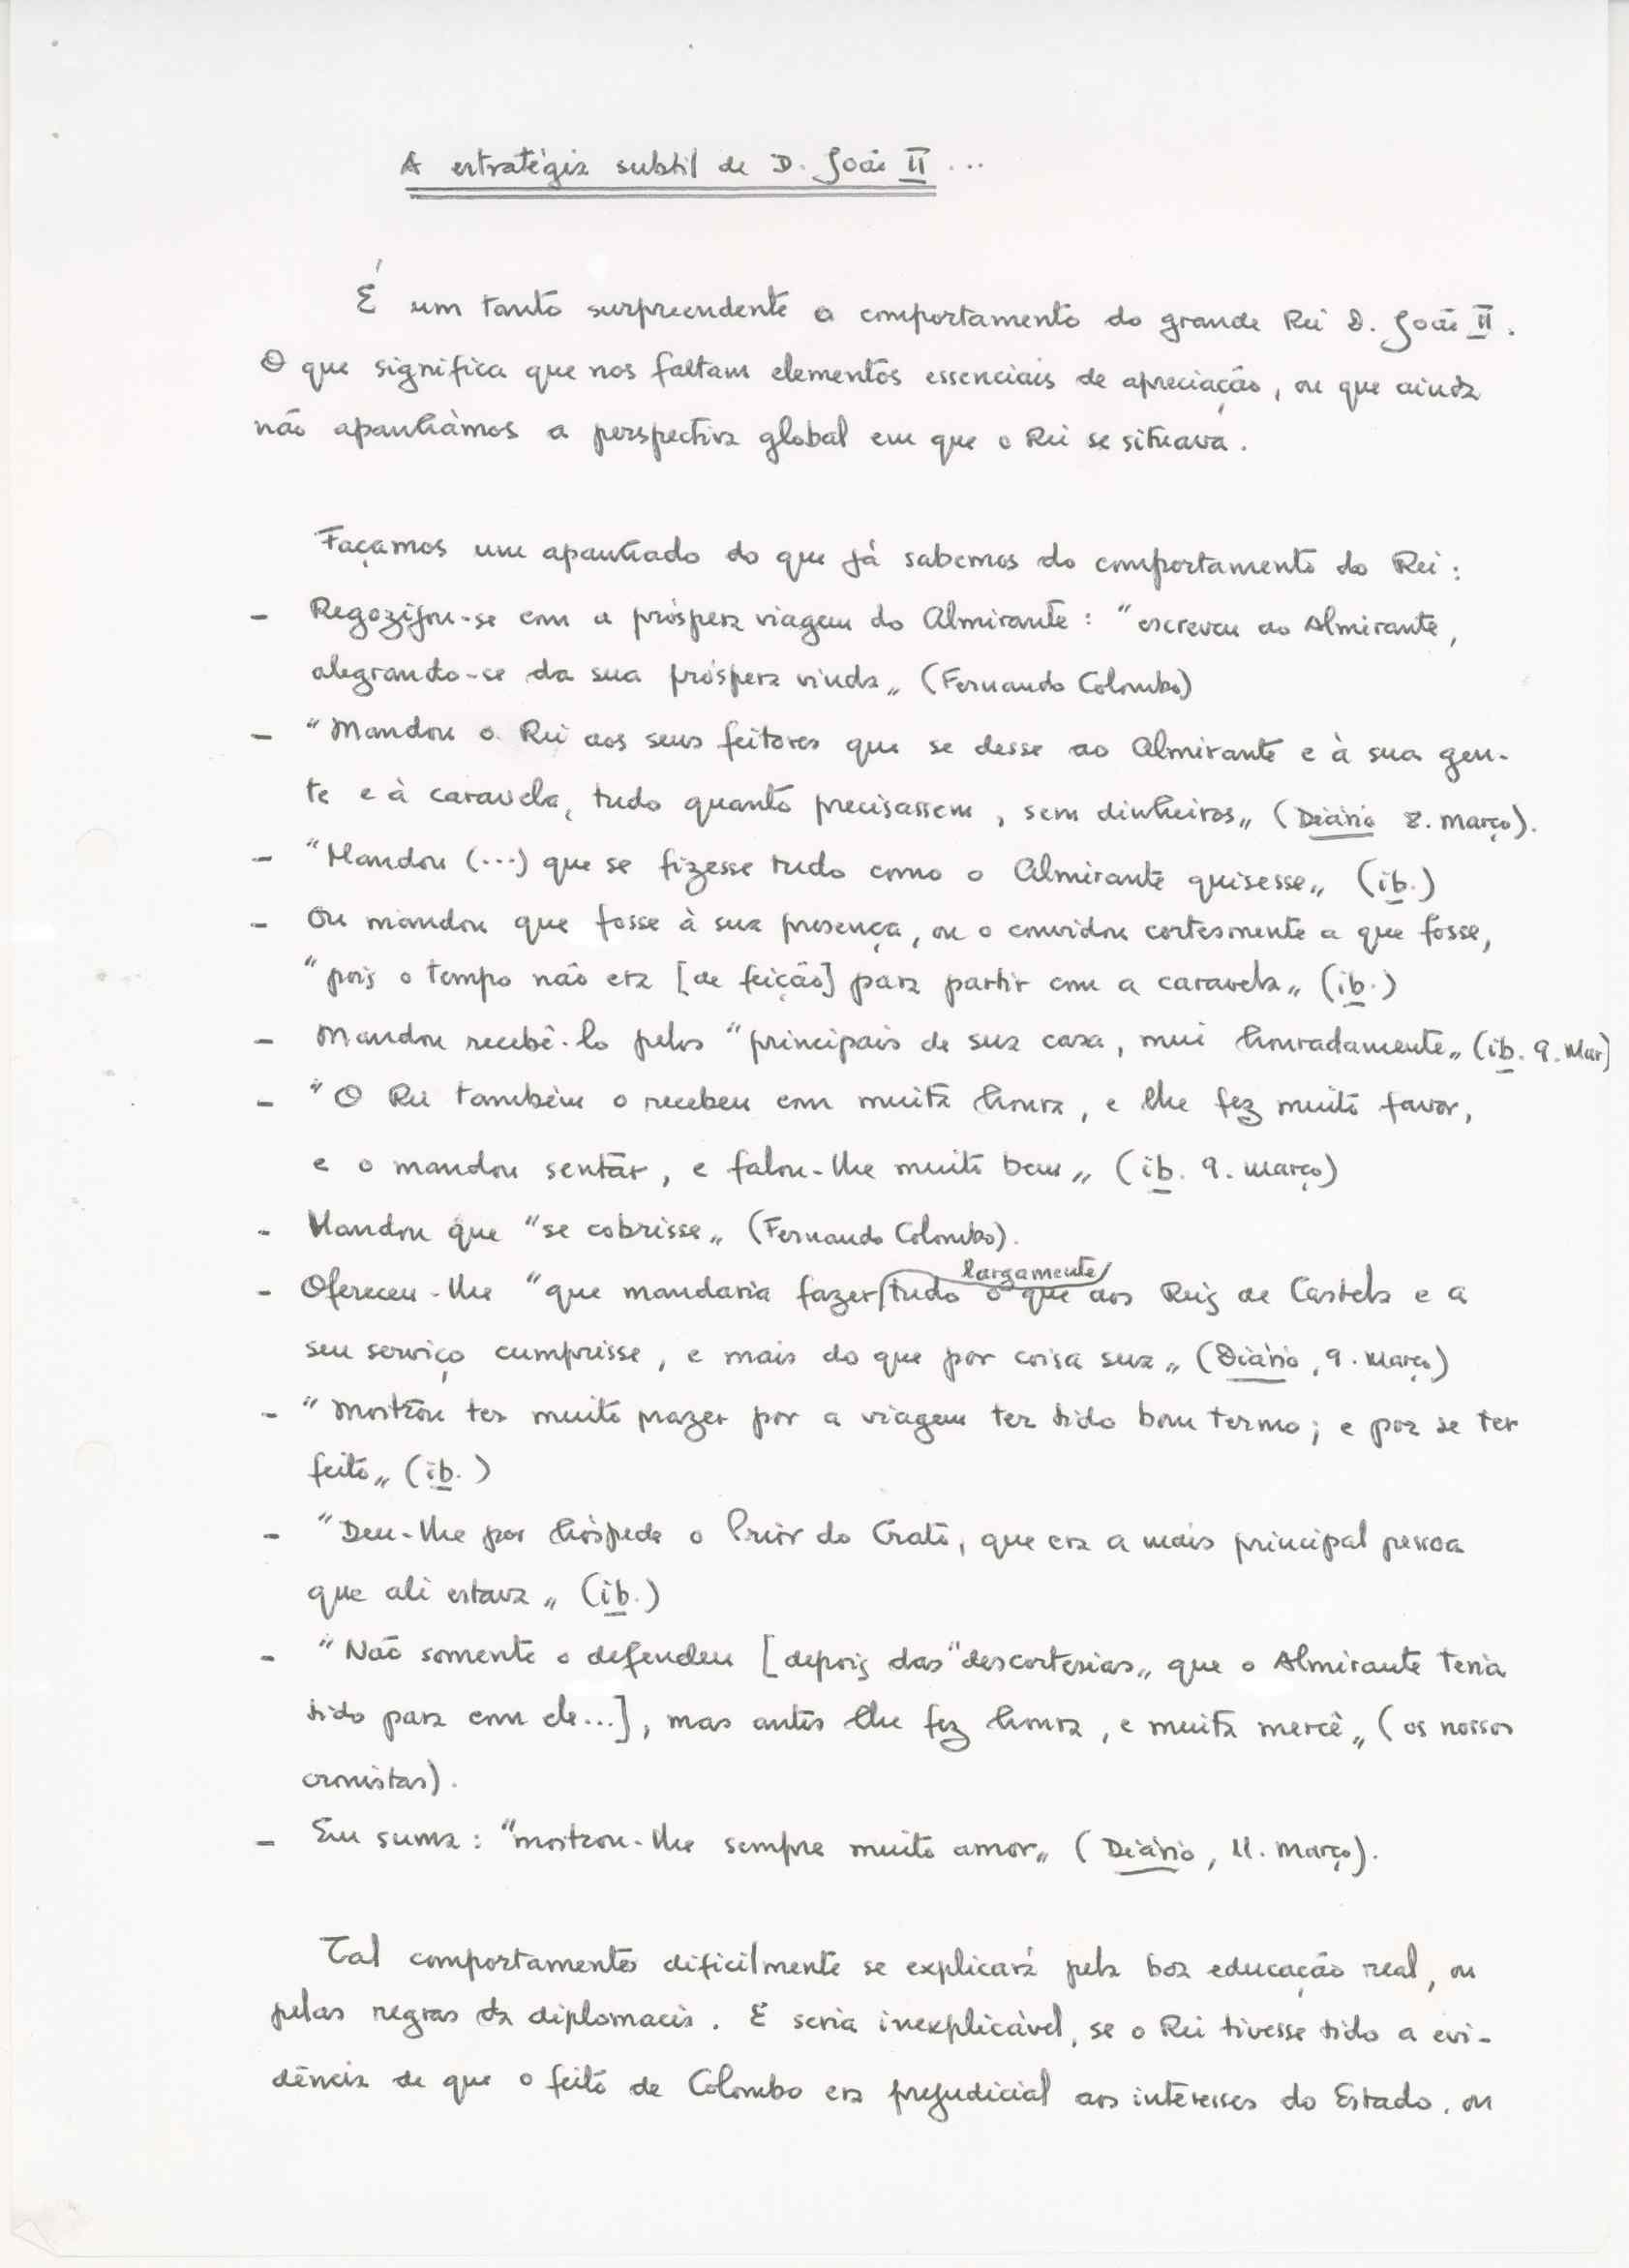 A estratégia subtil de D. João II ...
É um tanto surpreendente o comportamento do grande Rei D. João II.
O que significa que nos faltam elementos essenciais de apreciação, ou que ainda
não apanhámos a perspectiva global em que o Rei se situava.
Façamos um apanhado do que já sabemos do comportamento do Rei:
- Regozijou-se com a próspera viagem do Almirante: "escreveu ao Almirante,
alegrando-se da sua próspera vinda" (Fernando Colombo)
- "Mandou o Rei aos seus feitores que se desse ao Almirante e à sua gen-
te e à caravela, tudo quanto precisassem, sem dinheiros" (Diário 8. Março).
- "Mandou (...) que se fizesse tudo como o Almirante quisesse" (ib.)
- Ou mandou que fosse à sua presença, ou o convidou cortesmente a que fosse,
"pois o tempo não era [de feição] para partir com a caravela" (ib.)
- Mandou recebê-lo pelos "principais de sua casa, mui honradamente" (ib. 9. Mar)
- "O Rei também o recebeu com muita honra, e lhe fez muito favor,
e o mandou sentar, e falou-lhe muito bem" (ib. 9. Março)
- Mandou que "se cobrisse" (Fernando Colombo).
- Ofereceu-lhe "que mandaria fazer largamente tudo o que aos Reis de Castela e a
seu serviço cumprisse, e mais do que por coisa sua" (Diário, 9. Março)
- "Mostrou ter muito prazer por a viagem ter tido bom termo; e por se ter
feito" (ib.)
- "Deu-lhe por hóspede o Prior do Crato, que era a mais principal pessoa
que ali estava" (ib.)
- "Não somente o defendeu [depois das "descortesias" que o Almirante teria
tido para com ele...], mas antes lhe fez honra, e muita mercê" (os nossos
cronistas).
- Em suma: "mostrou-lhe sempre muito amor" (Diário, 11. Março).
Tal comportamento dificilmente se explicará pela boa educação real, ou
pelas regras da diplomacia. E seria inexplicável, se o Rei tivesse tido a evi-
dência de que o feito de Colombo era prejudicial aos interesses do Estado, ou